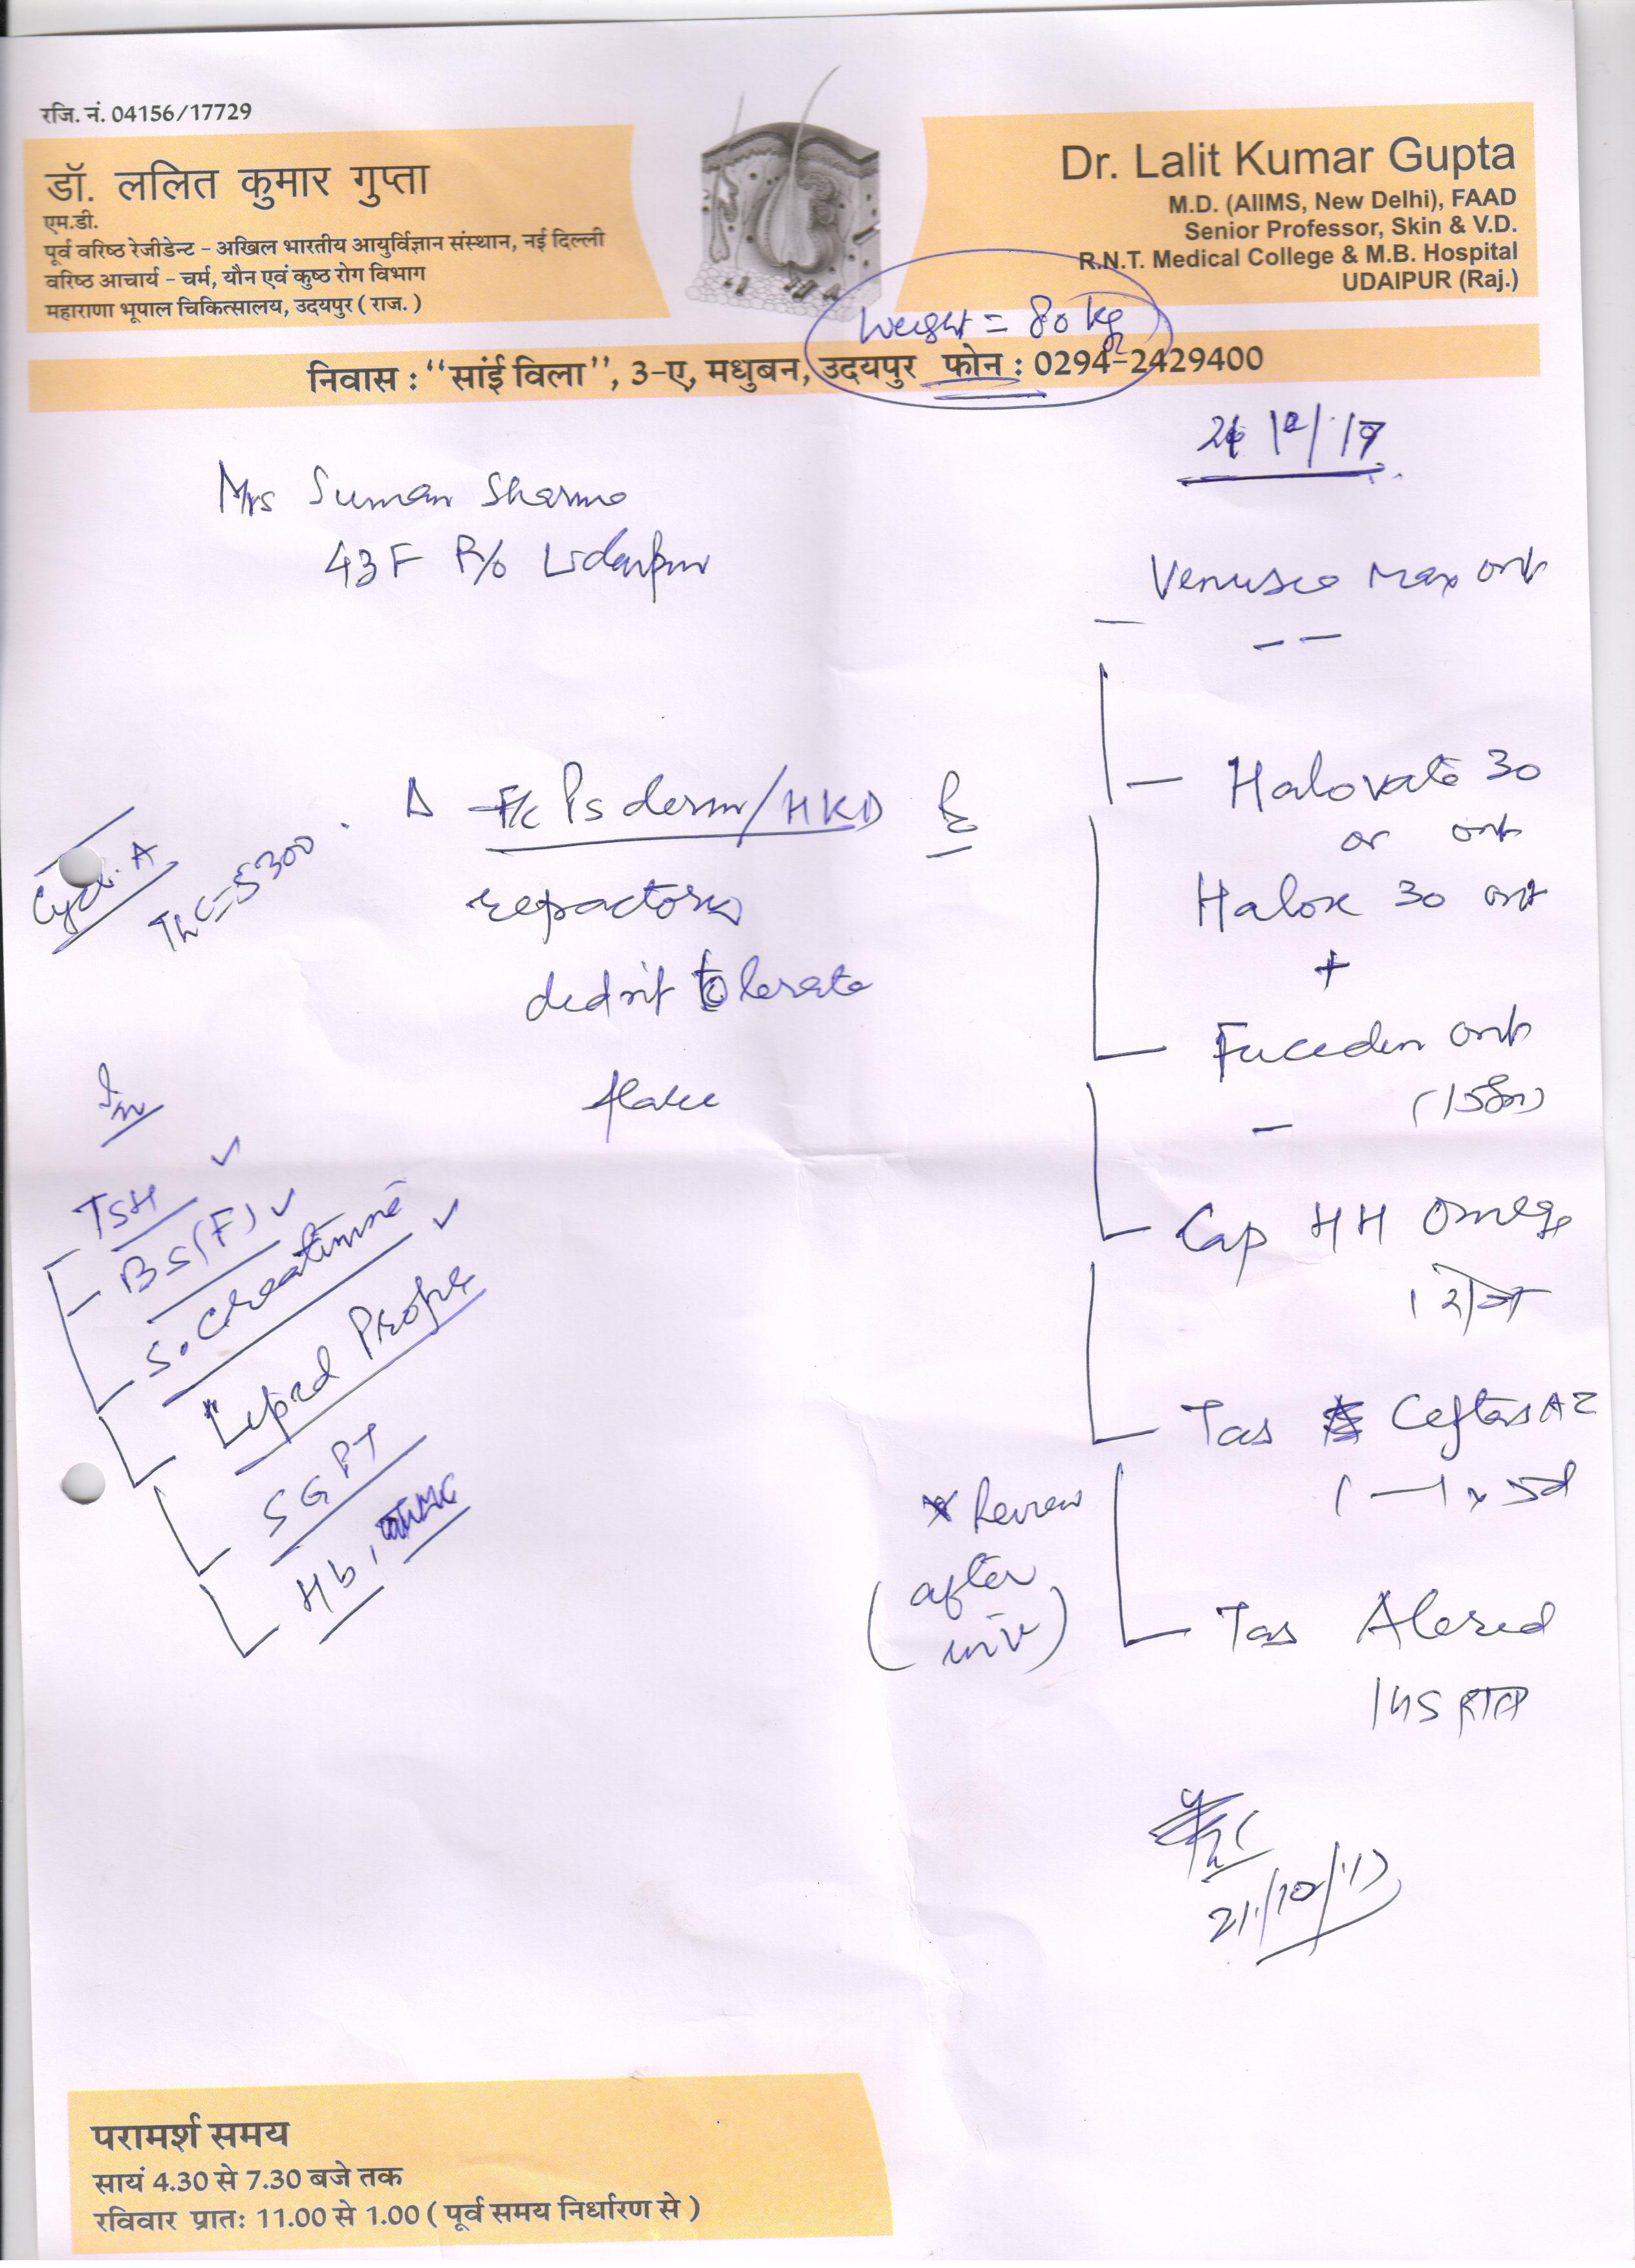 रजि. नं. 04156/17729
डॉ. ललित कुमार गुप्ता
एम.डी.
पूर्व वरिष्ठ रेजीडेन्ट - अखिल भारतीय आयुर्विज्ञान संस्थान, नई दिल्ली
वरिष्ठ आचार्य - चर्म, यौन एवं कुष्ठ रोग विभाग
महाराणा भूपाल चिकित्सालय, उदयपुर ( राज. )
Dr. Lalit Kumar Gupta
M.D. (AIIMS, New Delhi), FAAD
Senior Professor, Skin & V.D.
R.N.T. Medical College & M.B. Hospital
UDAIPUR (Raj.)
Weight = 80 kg
निवास : "सांई विला", 3-ए, मधुबन, उदयपुर फोन : 0294-2429400
Mrs Suman Sharma
43F R/o Udaipur
Ps derm/HKD
refractory
didn't tolerate
TLC=5300
Inv
TSH ✓
BS(F) ✓
S. Creatinine ✓
Lipid Profile
SGPT
Hb,
Venusia Max oint
Halovate 30
or oint
Halox 30 oint
+
oint
(15gm)
Cap HH Omega
1 रोज
Tab AZ
1—1 x 5d
Tab Alerid
रात
* Review
after
(inv)
21/10/17
परामर्श समय
सायं 4.30 से 7.30 बजे तक
रविवार प्रातः 11.00 से 1.00 ( पूर्व समय निर्धारण से )